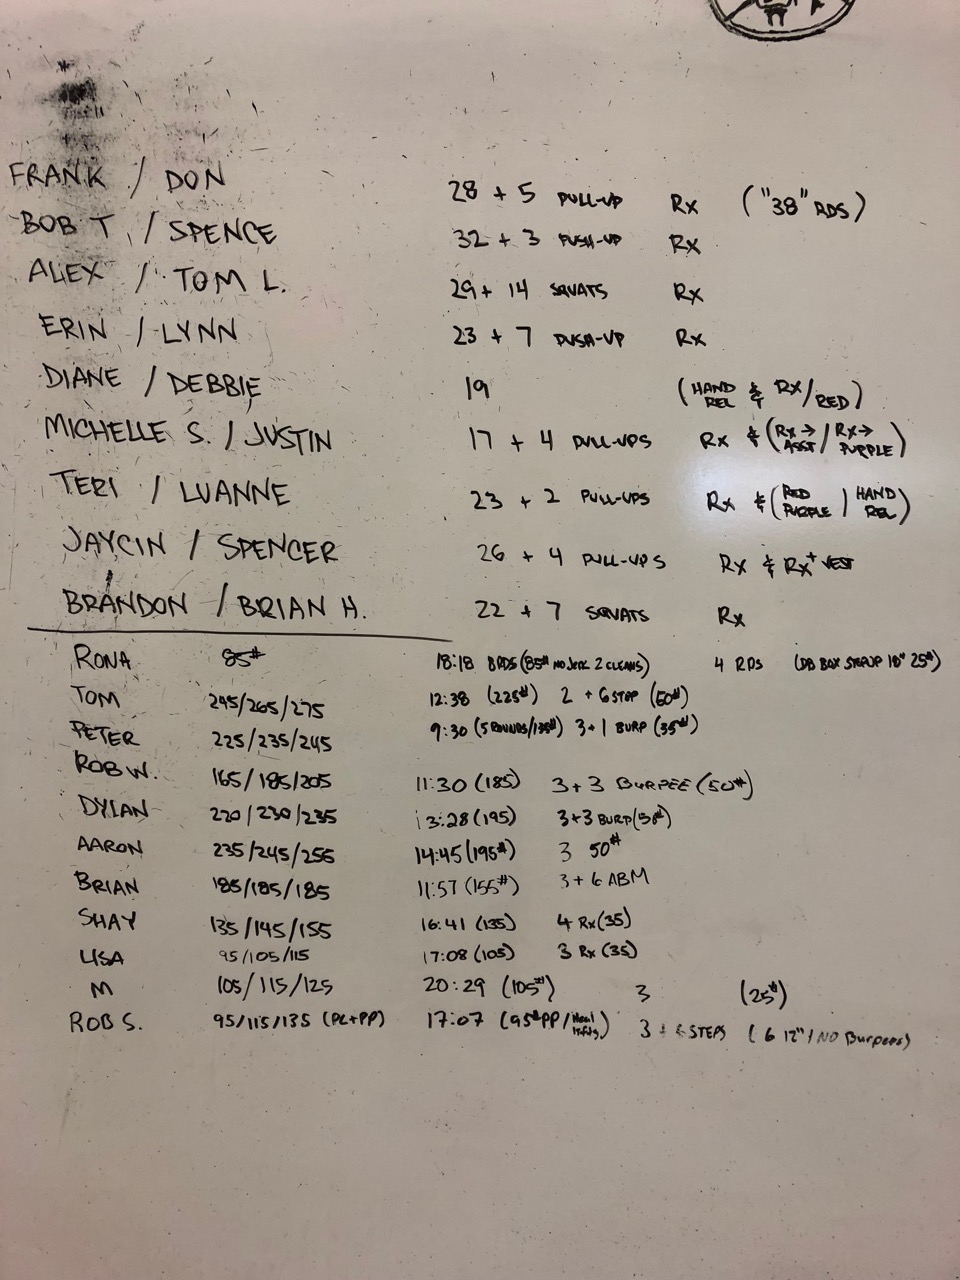 FRANK / DON 28 + 5 PULL-UP Rx ("38" RDS)
BOB T. / SPENCE 32 + 3 PUSH-UP Rx
ALEX / TOM L. 29 + 14 SQUATS Rx
ERIN / LYNN 23 + 7 PUSH-UP Rx
DIANE / DEBBIE 19 (HAND REL & RX/RED)
MICHELLE S. / JUSTIN 17 + 4 PULL-UPS Rx & (Rx→ ASST / Rx→ PURPLE)
TERI / LUANNE 23 + 2 PULL-UPS Rx & (RED PURPLE | HAND REL)
JAYCIN / SPENCER 26 + 4 PULL-UPS Rx & Rx+ VEST
BRANDON / BRIAN H. 22 + 7 SQUATS Rx
RONA 85# 18:18 8RDS (85# NO JERK 2 CLEANS) 4 RDS (DB BOX STEPUP 18" 25#)
TOM 245/265/275 12:38 (225#) 2 + 6 STEP (50#)
PETER 225/235/245 9:30 (5 ROUNDS/135#) 3+1 BURP (35#)
ROB W. 165/185/205 11:30 (185) 3+3 BURPEE (50#)
DYLAN 220/230/235 13:28 (195) 3+3 BURP (50#)
AARON 235/245/255 14:45 (195#) 3 50#
BRIAN 185/185/185 11:57 (155#) 3+6 ABM
SHAY 135/145/155 16:41 (135) 4 Rx (35)
LISA 95/105/115 17:08 (105) 3 Rx (35)
M 105/115/125 20:29 (105#) 3 (25#)
ROB S. 95/115/135 (PC+PP) 17:07 (95# PP/ 3 + 6 STEPS (6 12" / NO Burpees)